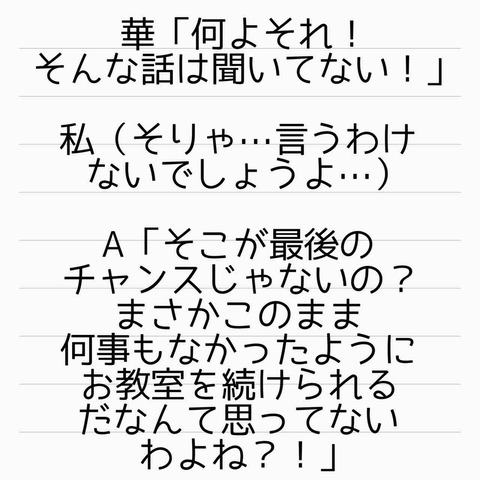 華「何よそれ！
そんな話は聞いてない！」
私（そりゃ…言うわけ
ないでしょうよ…）
A「そこが最後の
チャンスじゃないの？
まさかこのまま
何事もなかったように
お教室を続けられる
だなんて思ってない
わよね？！」